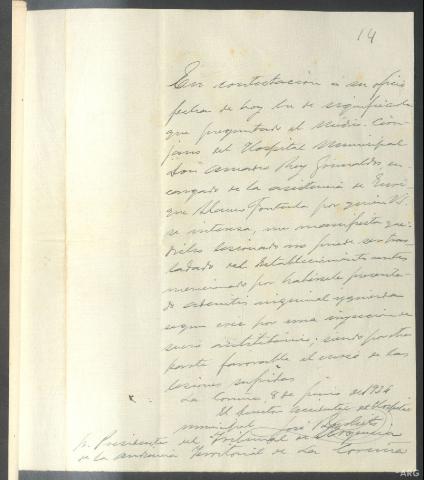 14
En contestación á su oficio
fecha de hoy he de significarle
que preguntado el Médico Ciru
jano del Hospital Municipal
Don Amadeo Rey en
cargado de la asistencia de Enri
que Blanco Fontenla por quien V.
se interesa, me manifiesta que
dicho lesionado no puede ser tras
ladado del establecimiento antes
mencionado por habérsele presenta
do adenitis inguinal izquierda
segun cree por una inyección de
suero antitetánico; siendo por otra
parte favorable el curso de las
lesiones sufridas.
La Coruña 8 de Junio de 1934
El Director accidental del Hospital
municipal José
Sr. Presidente del Tribunal de Urgencia
de la Audiencia Territorial de La Coruña
ARG